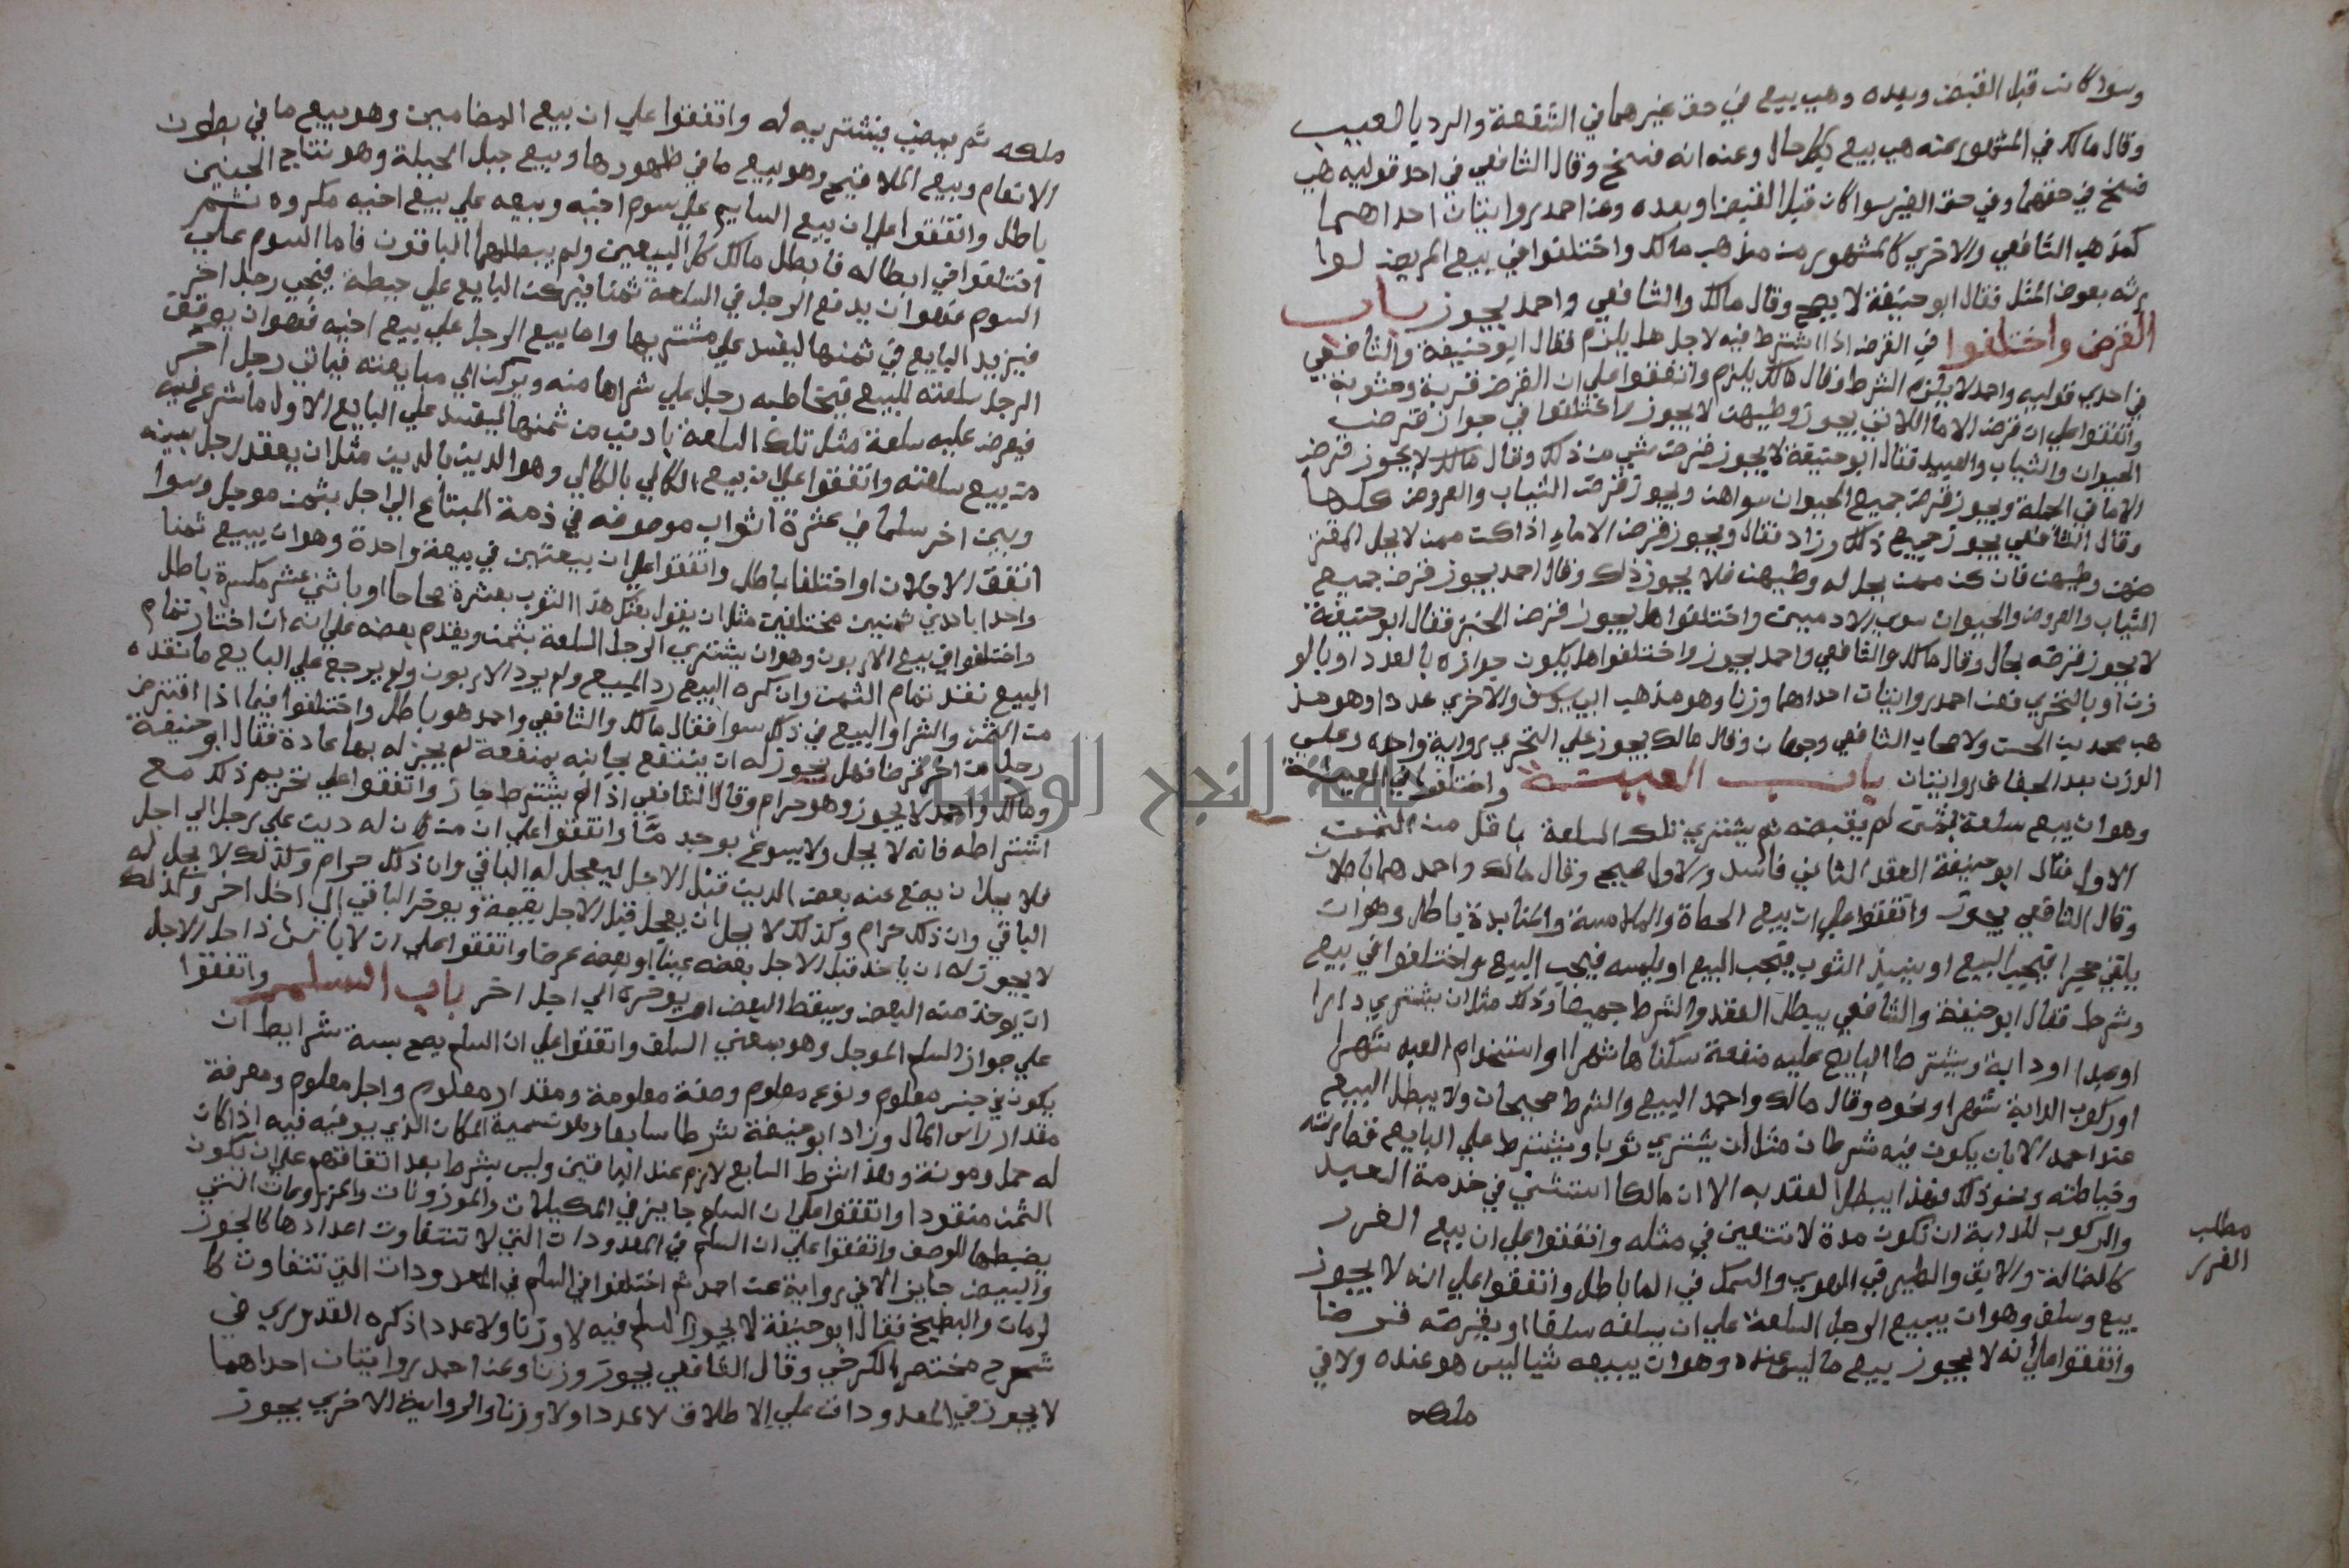 وسوا كانت قبل القبض وبعده وهي بيع في حق غيرهما في الشفعة والرد بالعيب
وقال مالك في المشهور عنه هي بيع بكل حال وعنه انه فسخ وقال الشافعي في احد قوليه هي
فسخ في حقهما وفي حق الغير سوا كان قبل القبض او بعده وعن احمد روايتان احداهما
كمذهب الشافعي والاخري كالمشهور من مذهب مالك واختلفوا في بيع المريض لوا
رثه بعوض المثل فقال ابو حنيفة لا يصح وقال مالك والشافعي واحمد يجوز باب
القرض واختلفوا في القرض اذا اشترط فيه لاجل هل يلزم فقال ابو حنيفة والشافعي
في احدي قوليه واحمد لا يلزم الشرط وقال مالك يلزم واتفقوا علي ان القرض قربة ومثوبة
واتفقوا علي ان قرض الاما اللاتي يجوز وطيهن لا يجوز واختلفوا في جواز قرض
الحيوان والثياب والعبيد فقال ابو حنيفة لا يجوز قرض شي من ذلك وقال مالك لا يجوز قرض
الاما في الجملة ويجوز قرض جميع الحيوان سواهن ويجوز قرض الثياب والعروض كلها
وقال الشافعي يجوز جميع ذلك وزاد فقال ويجوز قرض الاماء اذا كن ممن لا يحل لمقتر
ضهن وطيهن فان كن ممن يحل له وطيهن فلا يجوز ذلك وقال احمد يجوز قرض جميع
الثياب والعروض والحيوان سوي الادميين واختلفوا هل يجوز قرض الخبز فقال ابو حنيفة
لا يجوز قرضه بحال وقال مالك والشافعي واحمد يجوز واختلفوا هل يكون جوازه بالعدد او بالو
زن او بالتحري فعن احمد روايتان احداهما وزنا وهو مذهب ابي يوسف والاخري عددا وهو مذ
هب محمد بن الحسن ولاصحاب الشافعي وجهان وقال مالك يجوز علي التحري رواية واحدة وعلي
الوزن بعد الجفاف روايتان باب العينة واختلفوا في العينة
وهو ان يبيع سلعة بثمن لم يقبضه ثم يشتري تلك السلعة باقل من الثمن
الاول فقال ابو حنيفة العقد الثاني فاسد والاول صحيح وقال مالك واحمد هما باطلان
وقال الشافعي يجوز واتفقوا علي ان بيع الحصاة والملامسة والمنابذة باطل وهو ان
يلقي حجرا فيجب البيع او ينبذ الثوب فيجب البيع او يلمسه فيجب البيع واختلفوا في بيع
وشرط فقال ابو حنيفة والشافعي يبطل العقد والشرط جميعا وذلك مثل ان يشتري دارا
او عبدا او دابة ويشترط البايع عليه منفعة سكناها شهرا او استخدام العبد شهرا
او ركوب الدابة شهرا ونحوه وقال مالك واحمد البيع والشرط صحيحان ولا يبطل البيع
عند احمد الا بان يكون فيه شرطان مثل ان يشتري ثوبا ويشترط علي البايع قصارته
وخياطته ونحو ذلك فهذا يبطل العقد به الا ان مالكا استثني في خدمة العبد
والركوب للدابة ان تكون مدة لا تتعين في مثله واتفقوا علي ان بيع الغرر
كالضالة والابق والطير في الهوي والسمك في الما باطل واتفقوا علي انه لا يجوز
بيع وسلف وهو ان يبيع الرجل السلعة علي ان يسلفه سلفا او يقرضه قرضا
واتفقوا علي انه لا يجوز بيع ما ليس عنده وهو ان يبيعه شيا ليس هو عنده ولا في
ملكه
مطلب
الغرر
ملكه ثم يمضي فيشتريه له واتفقوا علي ان بيع المضامين وهو بيع ما في بطون
الانعام وبيع الملاقيح وهو بيع ما في ظهورها وبيع حبل الحبلة وهو نتاج الجنين
باطل واتفقوا علي ان بيع السايم علي سوم اخيه وبيعه علي بيع اخيه مكروه ثم
اختلفوا في ابطاله فابطل مالك كل البيعين ولم يبطلهما الباقون فاما السوم علي
السوم فهو ان يدفع الرجل في السلعة ثمنا فيركن البايع علي فيجي رجل اخر
فيزيد البايع في ثمنها ليفسد علي مشتريها واما بيع الرجل علي بيع اخيه فهو ان يوقف
الرجل سلعته للبيع فيخاطبه رجل علي شراها منه ويركن الي مبايعته فياتي رجل اخر
فيعرض عليه سلعة مثل تلك السلعة بادني من ثمنها ليفسد علي البايع الاول ما شرع فيه
من بيع سلعته واتفقوا علي ان بيع الكالي بالكالي وهو الدين بالدين مثل ان يعقد رجل بينه
وبين اخر سلما في عشرة اثواب موصوفه في ذمة المبتاع الي اجل بثمن موجل وسوا
اتفق الاجلان او اختلفا باطل واتفقوا علي ان بيعتين في بيعة واحدة وهو ان يبيع ثمنا
واحدا باحدي ثمنين مختلفين مثل ان يقول بعتك هذا الثوب بعشرة صحاحا او باثني عشر مكسرة باطل
واختلفوا في بيع الاربون وهو ان يشتري الرجل السلعة بثمن ويقدم بعضه علي انه ان اختار تمام
البيع نقد تمام الثمن وان كره البيع رد المبيع ولم يرد الاربون ولم يرجع علي البايع ما نقده
من الثمن والشرا والبيع في ذلك سوا فقال مالك والشافعي واحمد هو باطل واختلفوا فيما اذا اقترض
رجل من اخر قرضا فهل يجوز له ان ينتفع بجانبه بمنفعة لم يجز له بها عادة فقال ابو حنيفة
ومالك واحمد لا يجوز وهو حرام وقال الشافعي اذا لم يشترط جاز واتفقوا علي تحريم ذلك مع
اشتراطه فانه لا يحل ولا يسوغ بوجه ما واتفقوا علي ان من كان له دين علي رجل الي اجل
فلا يحل ان يضع عنه بعض الدين قبل الاجل ليعجل له الباقي وان ذلك حرام وكذلك لا يحل له
الباقي وان ذلك حرام وكذلك لا يحل ان يعجل قبل الاجل بعضه ويوخر الباقي الي اجل اخر وكذلك
لا يجوز له ان ياخذ قبل الاجل بعضه عينا وبعضه عرضا واتفقوا علي ان لا باس اذا حل الاجل
ان يوخذ منه البعض ويسقط البعض او يوخره الي اجل اخر باب السلم واتفقوا
علي جواز السلم الموجل وهو بمعني السلف واتفقوا علي ان السلم يصح بستة شرايط ان
يكون في جنس معلوم ونوع معلوم وصفة معلومة ومقدار معلوم واجل معلوم ومعرفة
مقدار راس المال وزاد ابو حنيفة شرطا سابعا وهو تسمية المكان الذي يوفيه فيه اذا كان
له حمل ومونة وهذا الشرط السابع لازم عند الباقين وليس بشرط بعد اتفاقهم علي ان يكون
الثمن منقودا واتفقوا علي ان السلم جايز في المكيلات والموزونات والمزروعات التي
يضبطها الوصف واتفقوا علي ان السلم في المعدودات التي لا تتفاوت احادها كالجوز
والبيض جايز الا في رواية عن احمد ثم اختلفوا في السلم في المعدودات التي تتفاوت كا
لرمان والبطيخ فقال ابو حنيفة لا يجوز السلم فيه لا وزنا ولا عددا ذكره القدوري في
شرح مختصر الكرخي وقال الشافعي يجوز وزنا وعن احمد روايتان احداهما
لا يجوز في المعدودات علي الاطلاق لا عددا ولا وزنا والرواية الاخري يجوز
جامعة النجاح الوطنية